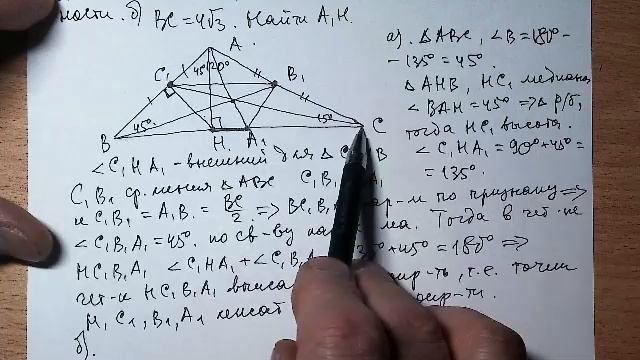 ности. б) BC = 4√3. Найти A₁H.
A
C₁
45°
120°
B₁
B
45°
H
A₁
15°
C
а). △ABC, ∠B = 180° -
- 135° = 45°.
△AHB, HC₁ медиана
∠BAH = 45° ⇒ △ р/б,
тогда HC₁ высота.
∠C₁HA₁ = 90° + 45° =
= 135°.
∠C₁HA₁ - внешний для △C B
C₁B₁ ср. линия △ABC C₁B₁ A₁
и C₁B₁ = A₁B₁ = BC/2 ⇒ BC₁B₁ ар-м по признаку ⇒
∠C₁B₁A₁ = 45° по св-ву ма. Тогда в чет-ке
HC₁B₁A₁ ∠C₁HA₁ + ∠C₁B₁A 5° + 45° = 180° ⇒
чет-к HC₁B₁A₁ впис окр-ть, т.е. точки
H, C₁, B₁, A₁ лежат окр-ти.
б).